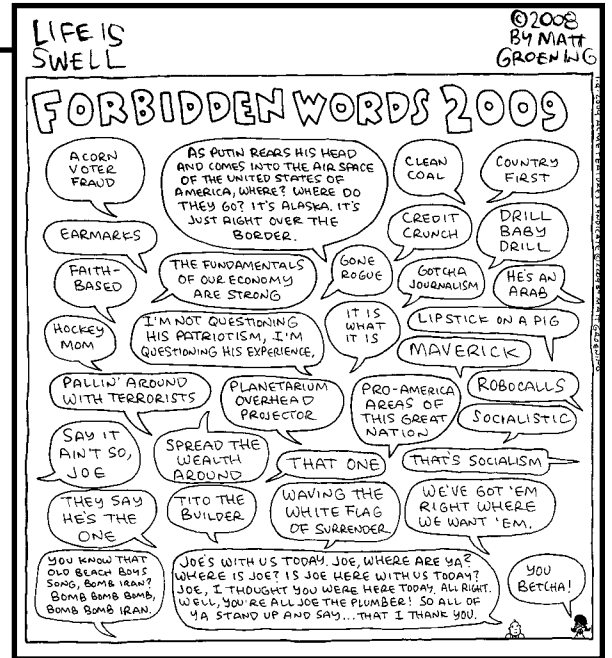 LIFE IS
SWELL
©2008
BY MATT
GROENING
FORBIDDEN WORDS 2009
ACORN
VOTER
FRAUD
AS PUTIN REARS HIS HEAD
AND COMES INTO THE AIR SPACE
OF THE UNITED STATES OF
AMERICA, WHERE? WHERE DO
THEY GO? IT'S ALASKA. IT'S
JUST RIGHT OVER THE
BORDER.
CLEAN
COAL
COUNTRY
FIRST
EARMARKS
CREDIT
CRUNCH
DRILL
BABY
DRILL
FAITH-
BASED
THE FUNDAMENTALS
OF OUR ECONOMY
ARE STRONG
GONE
ROGUE
GOTCHA
JOURNALISM
HE'S AN
ARAB
HOCKEY
MOM
I'M NOT QUESTIONING
HIS PATRIOTISM, I'M
QUESTIONING HIS EXPERIENCE.
IT IS
WHAT
IT IS
LIPSTICK ON A PIG
MAVERICK
PALLIN' AROUND
WITH TERRORISTS
PLANETARIUM
OVERHEAD
PROJECTOR
PRO-AMERICA
AREAS OF
THIS GREAT
NATION
ROBOCALLS
SOCIALISTIC
SAY IT
AIN'T SO,
JOE
SPREAD THE
WEALTH
AROUND
THAT ONE
THAT'S SOCIALISM
THEY SAY
HE'S THE
ONE
TITO THE
BUILDER
WAVING THE
WHITE FLAG
OF SURRENDER
WE'VE GOT 'EM
RIGHT WHERE
WE WANT 'EM.
YOU KNOW THAT
OLD BEACH BOYS
SONG, BOMB IRAN?
BOMB BOMB BOMB,
BOMB BOMB IRAN.
JOE'S WITH US TODAY. JOE, WHERE ARE YA?
WHERE IS JOE? IS JOE HERE WITH US TODAY?
JOE, I THOUGHT YOU WERE HERE TODAY. ALL RIGHT.
WELL, YOU'RE ALL JOE THE PLUMBER! SO ALL OF
YA STAND UP AND SAY...THAT I THANK YOU.
YOU
BETCHA!